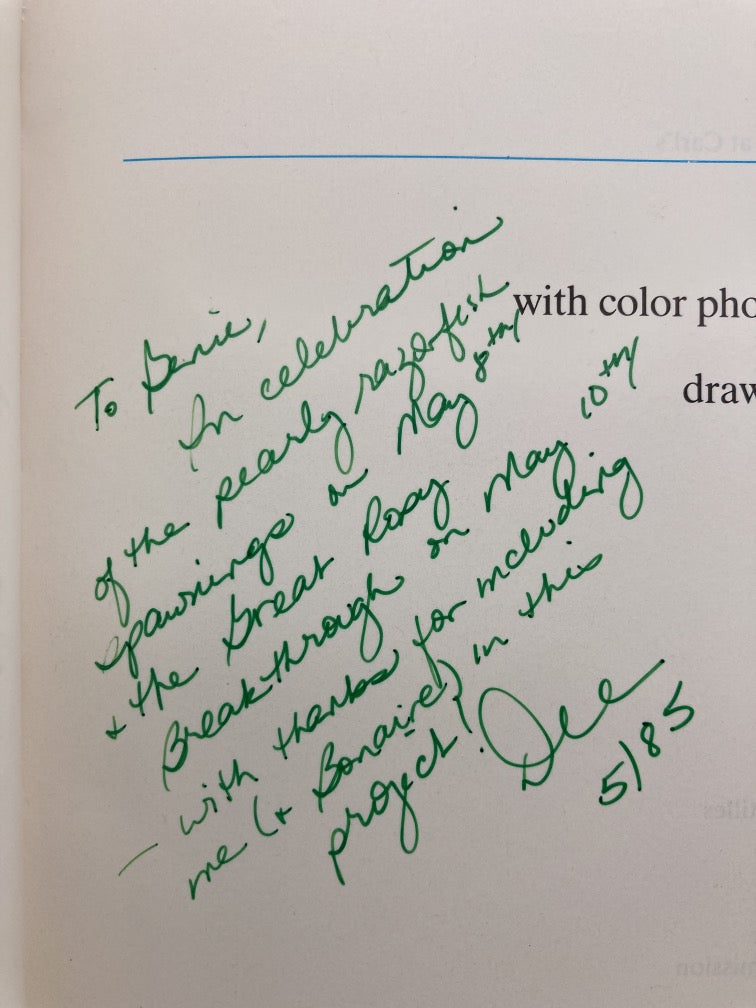 To Genie,
In celebration
of the pearly razorfish
spawnings on May 8th,
& the Great Roxy
Breakthrough on May 10th,
— with thanks for including
me (& Bonaire) in this
project!
Dee
5/85
with color pho
draw
at Carl's